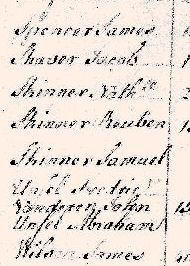 Spencer James
Shaver Jacob
Skinner Nathl
Skinner Reuben
Skinner Samuel
Unsel Fredric
Vanderen John
Unsel Abraham
Wilson James